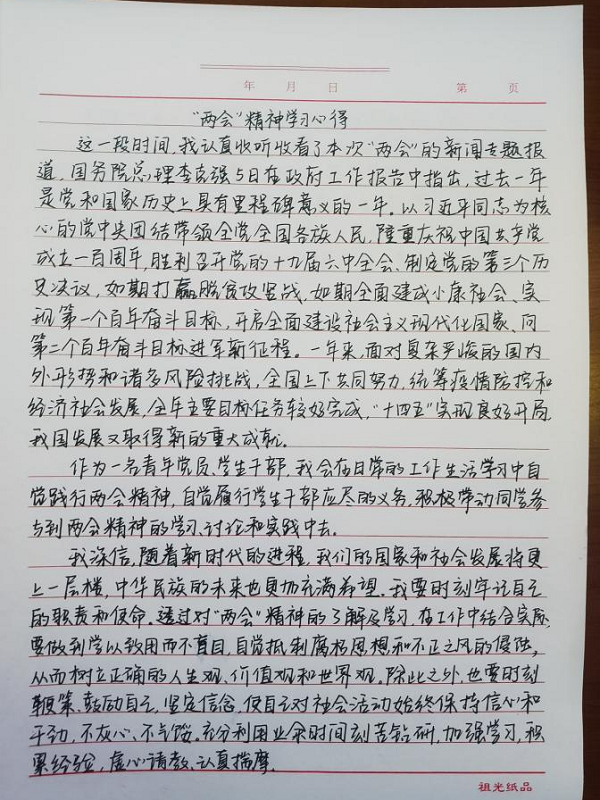 年 月 日 第 页
“两会”精神学习心得
这一段时间,我认真收听收看了本次“两会”的新闻专题报
道,国务院总理李克强5日在政府工作报告中指出,过去一年
是党和国家历史上具有里程碑意义的一年。以习近平同志为核
心的党中央团结带领全党全国各族人民,隆重庆祝中国共产党
成立一百周年,胜利召开党的十九届六中全会、制定党的第三个历
史决议,如期打赢脱贫攻坚战,如期全面建成小康社会、实
现第一个百年奋斗目标,开启全面建设社会主义现代化国家、向
第二个百年奋斗目标进军新征程。一年来,面对复杂严峻的国内
外形势和诸多风险挑战,全国上下共同努力,统筹疫情防控和
经济社会发展,全年主要目标任务较好完成,“十四五”实现良好开局,
我国发展又取得新的重大成就。
作为一名青年党员、学生干部,我会在日常的工作生活学习中自
觉践行两会精神,自觉履行学生干部应尽的义务,积极带动同学参
与到两会精神的学习、讨论和实践中去。
我深信,随着新时代的进程,我们的国家和社会发展将更
上一层楼,中华民族的未来也更加充满希望。我要时刻牢记自己
的职责和使命。透过对“两会”精神的了解及学习,在工作中结合实际,
要做到学以致用而不盲目,自觉抵制腐朽思想和不正之风的侵蚀,
从而树立正确的人生观、价值观和世界观。除此之外,也要时刻
鞭策、鼓励自己,坚定信念,使自己对社会活动始终保持信心和
干劲,不灰心、不气馁,充分利用业余时间刻苦钻研,加强学习,积
累经验,虚心请教、认真揣摩。
祖光纸品